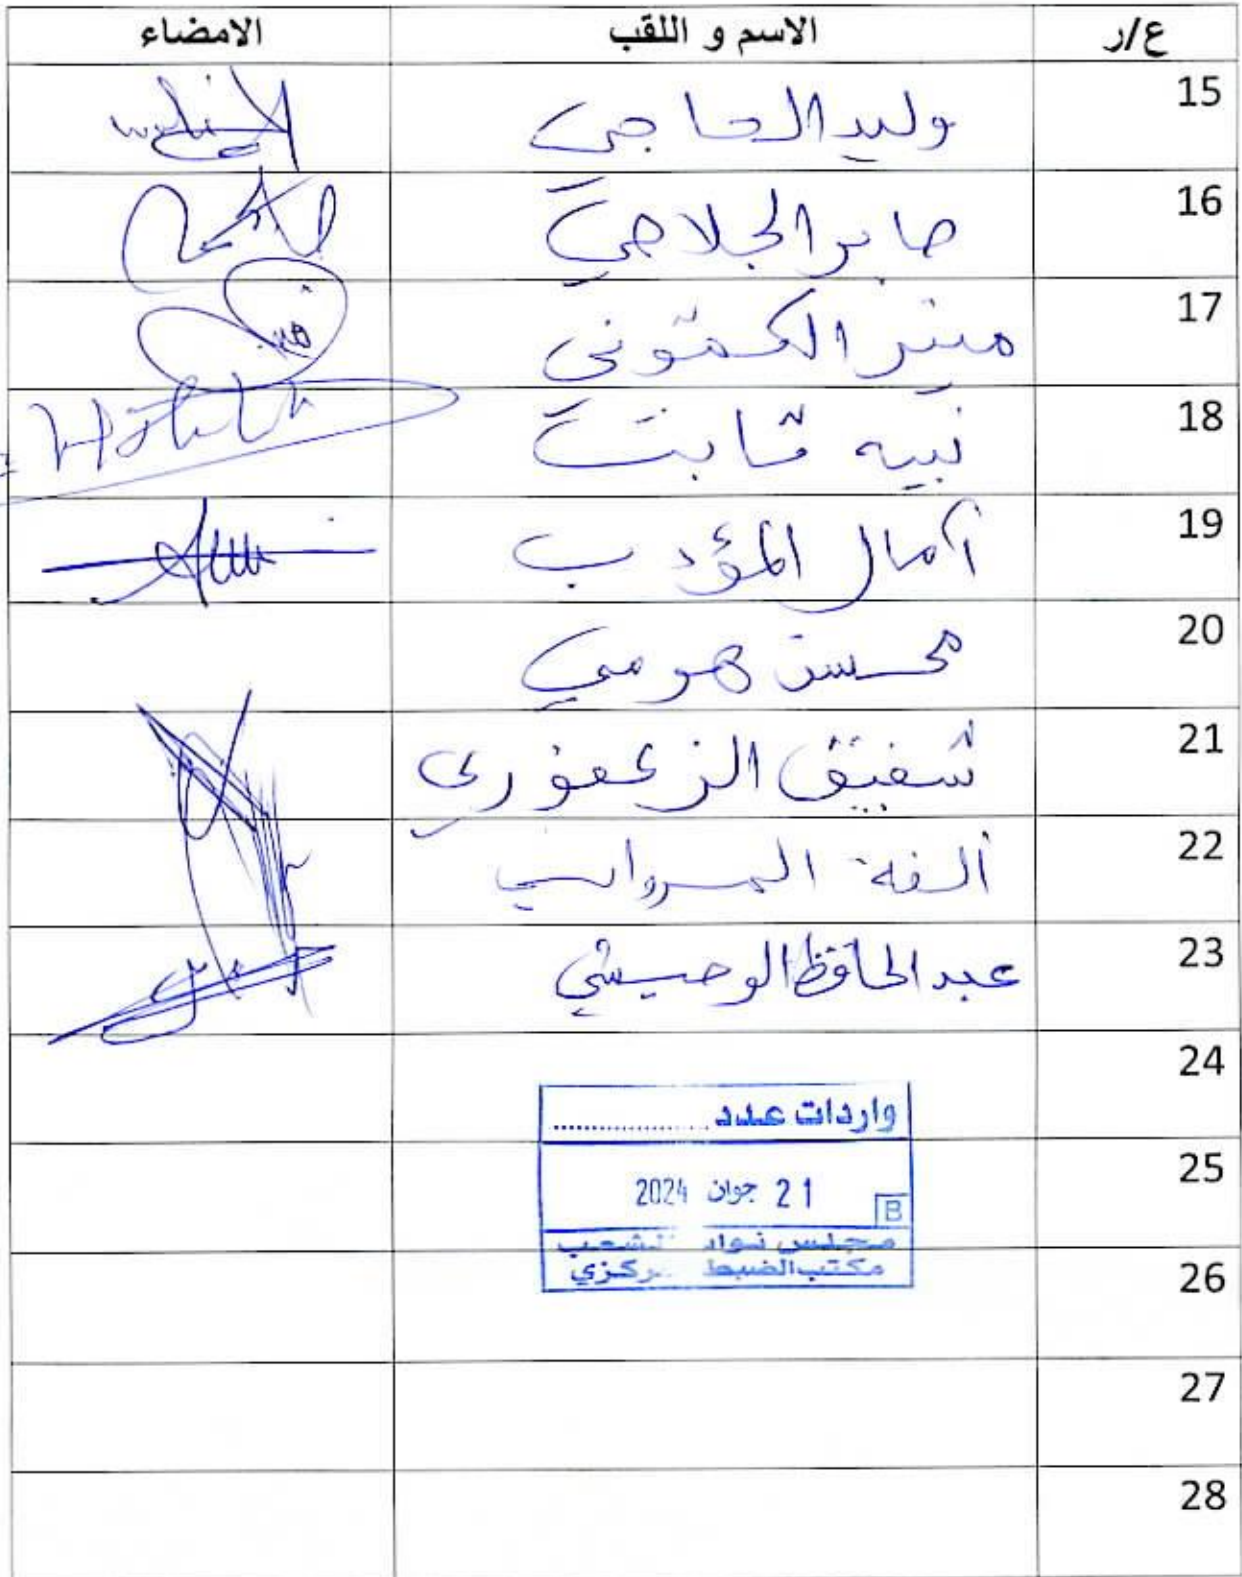 ع/ر الاسم و اللقب الامضاء
15 وليد الحاجي
16 صابر الجلاصي
17 ميز الكموني
18 نبيه ثابت
19 آمال المؤدب
20 محسن هرمي
21 شفيق الزعفوري
22 ألفة المرواني
23 عبد الحافظ الوحيشي
24
واردات عدد ..................
25
21 جوان 2024
B
مجلس نواب الشعب
26
مكتب الضبط المركزي
27
28